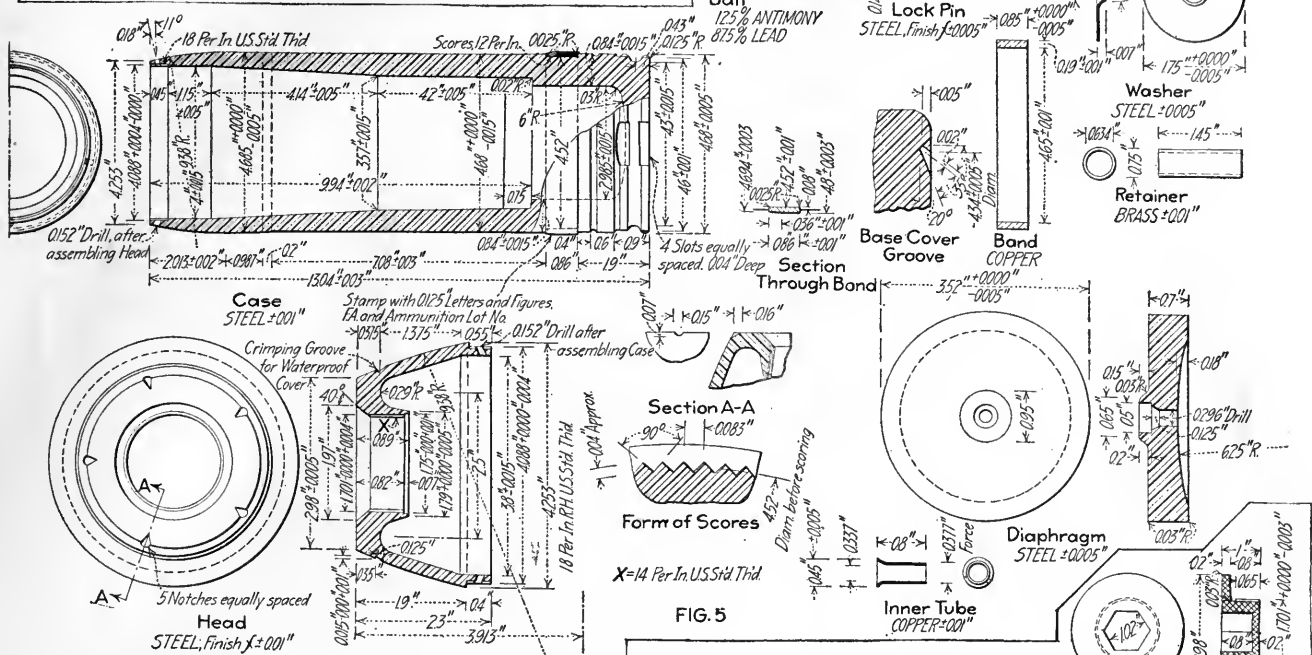 Ball
12.5% ANTIMONY
87.5% LEAD
Lock Pin
STEEL, Finish ±0.005"
0.85"
+0.000"
-0.005"
0.19"±0.01"
0.07"
1.75"+0.000"
-0.005"
Washer
STEEL ±0.005"
0.634"
1.45"
0.75"
Retainer
BRASS ±0.01"
0.18"
11°
18 Per In. U.S. Std. Thd.
Scores, 12 Per In.
0.025"R.
0.84"±0.015"
0.43"
0.125"R.
0.45"
1.15"
4.14"±0.05"
4.2"±0.05"
0.02"R.
0.3"R.
6"R.
4.253"
4.088"+0.004"-0.000"
9.38"R.
4"±0.05"
4.685"+0.000"
-0.005"
3.57"±0.005"
4.68"+0.000"
-0.015"
4.52"
2.985"±0.005"
4.3"±0.015"
4.6"±0.01"
4.68"±0.005"
9.94"±0.02"
0.75"
0.152" Drill, after
assembling Head
2.013"±0.02"
0.987"
0.2"
7.08"±0.03"
0.84"±0.015"
0.4"
0.6"
0.9"
0.86"
1.9"
13.04"±0.03"
4 Slots equally
spaced. 0.04" Deep
Case
STEEL ±0.01"
4.694"±0.003
0.025"R.
4.52"±0.01"
0.08"
4.8"±0.003"
0.36"±0.01"
0.86"
±0.01"
Section
Through Band
0.05"
0.02"
4.34"±0.005"
Diam.
20°
Base Cover
Groove
4.65"±0.01"
Band
COPPER
Stamp with 0.125" Letters and Figures,
F.A. and Ammunition Lot No.
0.375"
1.375"
0.55"
0.152" Drill after
assembling Case
Crimping Groove
for Waterproof
Cover
40°
0.29"R
9.38"R.
X
0.89"
0.82"
0.07"
2.98"±0.005"
1.9"
1.701"+0.000"+0.004"
1.75"
1.79"
2.5"
3.8"±0.015"
4.088"+0.000"-0.004"
4.253"
18 Per In. R.H. U.S. Std. Thd.
0.125"
0.35"
0.015"+0.00"+0.01"
1.9"
0.4"
2.3"
3.913"
A
A
5 Notches equally spaced
Head
STEEL, Finish ±0.01"
0.07"
0.15"
0.16"
Section A-A
0.04" Approx.
90°
0.083"
4.52"
Diam. before scoring
Form of Scores
X=14 Per In. U.S. Std. Thd.
FIG. 5
±0.005"
0.45"
0.337"
0.8"
0.377"
Force
Inner Tube
COPPER ±0.01"
3.52"+0.000"
-0.005"
0.95"
Diaphragm
STEEL ±0.005"
0.7"
0.18"
0.15"
0.03"R
0.65"
0.25"
0.296" Drill
0.125"
0.2"
6.25"R.
0.03"R.
1.02"
0.2"
1"
0.8"
0.65"
0.03"R
1.701"+0.000"-0.003"
0.8"
0.2"